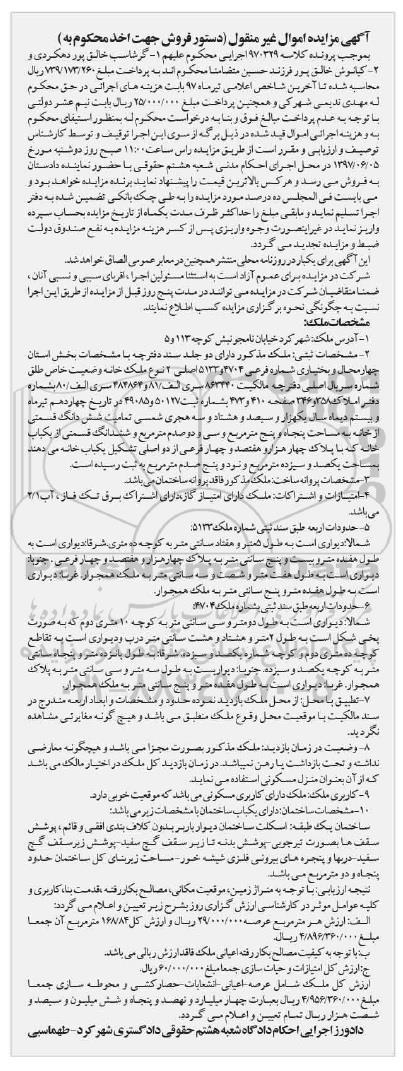 آگهی مزایده اموال غیر منقول (دستور فروش جهت اخذ محکوم به)
بموجب پرونده کلاسه ۹۷۰۳۲۹ اجرایی محکوم علیهم ۱- گرشاسب خالق پور دهکردی و
۲- کیانوش خالق پور فرزند حسین متضامنا محکوم اند به پرداخت مبلغ ۷۳۹/۱۷۳/۲۶۰ ریال
محاسبه شده تا آخرین شاخص اعلامی تیرماه ۹۷ بابت هزینه های اجرائی در حق محکوم
له مهدی ندیمی شهرکی و همچنین پرداخت مبلغ ۲۵/۰۰۰/۰۰۰ ریال بابت نیم عشر دولتی
با توجه به عدم پرداخت مبالغ فوق و بنا به درخواست محکوم له بمنظور استیفای محکوم
به و هزینه اجرائی اموال قید شده در ذیل برگه از سوی این اجرا توقیف و توسط کارشناس
توصیف و ارزیابی و مقرر است از طریق مزایده راس ساعت ۱۱:۰۰ صبح روز دوشنبه مورخ
۱۳۹۷/۰۶/۰۵ در محل اجرای احکام مدنی شعبه هشتم حقوقی با حضور نماینده دادستان
به فروش می رسد و هر کس بالاترین قیمت را پیشنهاد نماید برنده مزایده خواهد بود و
می بایست فی المجلس ده درصد مورد مزایده را به طی چک بانکی تضمین شده به دفتر
اجرا تسلیم نماید و مابقی مبلغ را حداکثر ظرف مدت یکماه از تاریخ مزایده بحساب سپرده
واریز نماید در غیر اینصورت وجوه واریزی پس از کسر هزینه مزایده به نفع صندوق دولت
ضبط و مزایده تجدید می گردد.
این آگهی برای یکبار در روزنامه محلی منتشر همچنین در معابر عمومی الصاق خواهد شد.
شرکت در مزایده برای عموم آزاد است به استثناء مسئولین اجرا، اقربای سببی و نسبی آنان،
ضمنا متقاضیان شرکت در مزایده می توانند در مدت پنج روز قبل از مزایده از طریق این اجرا
نسبت به چگونگی نحوه برگزاری مزایده کسب اطلاع نمایند.
مشخصات ملک:
۱- آدرس ملک: شهر کرد خیابان نامجو نبش کوچه ۱۱۳ و ۵
۲- مشخصات ثبتی: ملک مذکور دارای دو جلد سند دفترچه با مشخصات بخش استان
چهارمحال و بختیاری شماره فرعی ۴۷۰۴ و ۵۱۳۳ اصلی ۲ نوع ملک خانه وضعیت خاص طلق
شماره سریال اصلی دفترچه مالکیت ۸۶۳۴۴۰ سری الف/۸۱ و ۴۸۴۸۶۴ سری الف/۸۰ بشماره
دفتر املاک ۳۵۸ و ۲۴۶ صفحه ۴۱۰ و ۴۷۳ بشماره ثبت ۵۰۱۲۷ و ۴۹۰۸۵ در تاریخ چهاردهم تیرماه
و بیستم دیماه سال یکهزار و سیصد و هشتاد و سه هجری شمسی تمامیت شش دانگ قسمتی
از خانه به مساحت پنجاه و پنج مترمربع و سی و دو صدم مترمربع و ششدانگ قسمتی از یکباب
خانه که با پلاک چهار هزار و هفتصد و چهار فرعی از دو اصلی تشکیل یکباب خانه می دهند
بمساحت یکصد و سیزده مترمربع و نود و پنج صدم مترمربع به ثبت رسیده است.
۳- مشخصات پروانه ساخت: ملک مذکور فاقد پروانه ساختمان می باشد.
۴- امتیازات و اشتراکات: ملک دارای امتیاز گاز، دارای اشتراک برق تک فاز، آب ۱/۲
می باشد.
۵- حدود اربعه طبق سند ثبتی شماره ملک ۵۱۳۳:
شمالا: دیواری است به طول ۵ متر و هفتاد سانتی متر به کوچه ده متری. شرقا: دیواری است به
طول هفده متر و بیست و پنج سانتی متر به پلاک چهار هزار و هفتصد و چهار فرعی. جنوبا:
دیواری است به طول هفت متر و شصت و سه سانتی متر به ملک همجوار. غربا: دیواری
است به طول هفده متر و پنج سانتی متر به ملک همجوار.
۶- حدود اربعه طبق سند ثبتی بشماره ملک ۴۷۰۴:
شمالا: دیواری است به طول دو متر و سی سانتی متر به کوچه ۱۰ متری دوم که به صورت
پخی شکل است به طول ۲ متر و هشتاد و هشت سانتی متر درب و دیواری است به تقاطع
کوچه ده متری دوم و کوچه شماره یکصد و سیزده. شرقا: به طول پانزده متر و پنجاه سانتی
متر به کوچه یکصد و سیزده. جنوبا: دیواریست به طول سه متر و سی سانتی متر به پلاک
همجوار. غربا: دیواری است به طول هفده متر و پنج سانتی متر به ملک همجوار.
۷- تطبیق با محل: از محل ملک بازدید نموده حدود و مشخصات و ابعاد اربعه مندرج در
سند مالکیت با موقعیت محل وقوع ملک منطبق می باشد و هیچ گونه مغایرتی مشاهده
نگردید.
۸- وضعیت در زمان بازدید: ملک مذکور بصورت مجزا می باشد و هیچگونه معارضی
نداشته و تحت بازداشت یا رهن نمیباشد. در زمان بازدید کل ملک در اختیار مالک می باشد
که از آن بعنوان منزل مسکونی استفاده می نماید.
۹- کاربری ملک: ملک دارای کاربری مسکونی می باشد که موقعیت خوبی دارد.
۱۰- مشخصات ساختمان: دارای یکباب ساختمان با مشخصات زیر می باشد:
ساختمان یک طبقه: اسکلت ساختمان دیوار باربر بدون کلاف بندی افقی و قائم، پوشش
سقف ها بصورت تیرچوبی- پوشش بدنه تا زیر سقف گچ سفید- پوشش زیرسقف گچ
سفید- دربها و پنجره های بیرونی فلزی شیشه خور- مساحت زیربنای کل ساختمان حدود
پنجاه و دو مترمربع می باشد.
نتیجه ارزیابی: با توجه به متراژ زمین، موقعیت مکانی، مصالح بکاررفته، قدمت بنا، کاربری و
کلیه عوامل موثر در کارشناسی ارزش گزاری روز بشرح زیر تعیین و اعلام می گردد:
الف: ارزش هر مترمربع عرصه ۲۹/۰۰۰/۰۰۰ ریال و ارزش کل ۱۶۸/۸۴ مترمربع آن جمعا
مبلغ ۴/۸۹۶/۳۶۰/۰۰۰ ریال.
ب: با توجه به کیفیت مصالح بکار رفته اعیانی ملک فاقد ارزش ریالی می باشد.
ج: ارزش کل امتیازات و حیات سازی جمعا مبلغ ۶۰/۰۰۰/۰۰۰ ریال.
ارزش کل ملک شامل عرصه- اعیانی- انشعابات- حصارکشی و محوطه سازی جمعا
مبلغ ۴/۹۵۶/۳۶۰/۰۰۰ ریال بعبارت چهار میلیارد و نهصد و پنجاه و شش میلیون و سیصد و
شصت هزار ریال تمام تعیین و اعلام می گردد.
دادورز اجرایی احکام دادگاه شعبه هشتم حقوقی دادگستری شهر کرد- طهماسبی